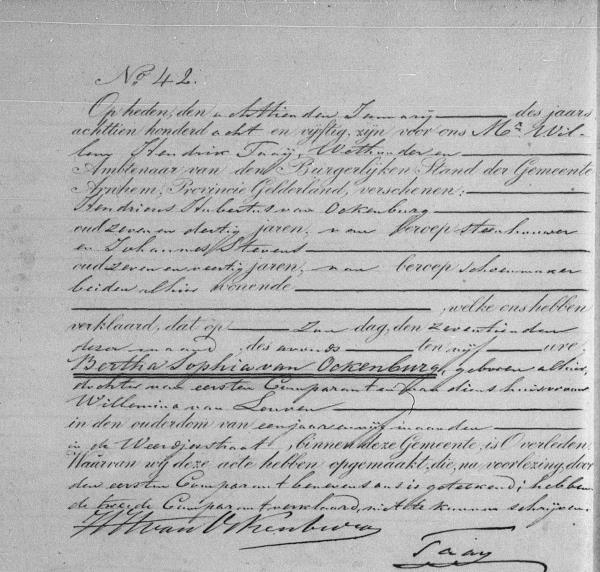 No 42.
Op heden, den achttienden Januarij des jaars
achttien honderd acht en vijftig, zijn voor ons Mr. Wil-
lem Hendrik Taaij, Wethouder en
Ambtenaar van den Burgerlijken Stand der Gemeente
Arnhem, Provincie Gelderland, verschenen:
Hendricus Hubertus van Ockenburg
oud zeven en dertig jaren, van beroep steenhouwer
en Johannes Stevens
oud zeven en veertig jaren, van beroep schoenmaker
beiden alhier wonende
, welke ons hebben
verklaard, dat op Zon dag, den zeventienden
dezer maand, des avonds ten vijf ure,
Bertha Sophia van Ockenburg, geboren alhier,
dochter van eersten Comparant en van diens huisvrouw
Willemina van Leuven
in den ouderdom van een jaar en vijf maanden
in de Weerdjesstraat, binnen deze Gemeente, is Overleden.
Waarvan wij deze acte hebben opgemaakt, die, na voorlezing, door
den eersten Comparant benevens ons is geteekend; hebbende
de tweede Comparant verklaard, niet te kunnen schrijven.
HHvan Ockenburg
Taaij